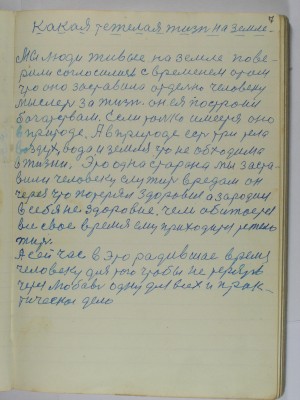 7
Какая тежелая жизн на земле.
Мы люди живые на земле пове-
рили согласились с временем этом
что оно заставило отделно человеку
мыслер за жизн он ея построил
богатвам. Если только имеется оно
в природе, А в природе ест три тела
воздух, вода и земля что не обходимо
в жизни, Это одна старана мы заста-
вили человеку смужир вредам он
через что потерял здоровия а зародил
в себя не здоровие, чем
вы свое время ему приходится
А сей час в это радившее время
человеку для того чтобы не терять
через любовь одну для всех и прак-
тическое дело